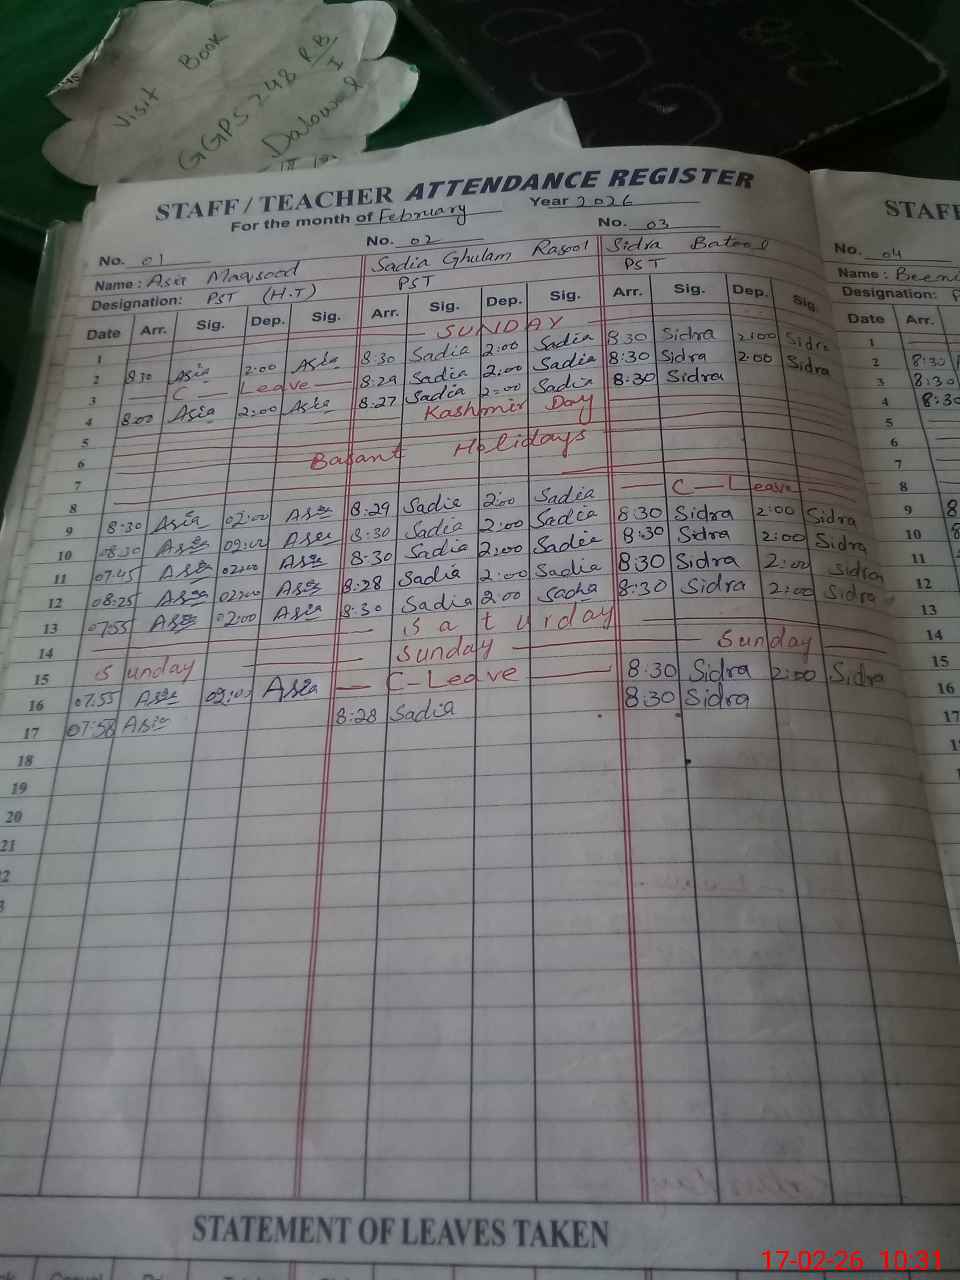 Visit Book
GGPS 248 RB
I
Dalowal
STAFF / TEACHER ATTENDANCE REGISTER
For the month of February Year 2026
No. 01 No. 02 No. 03
Name : Asia Maqsood Sadia Ghulam Rasool Sidra Batool
Designation: PST (H.T) PST PST
Date Arr. Sig. Dep. Sig. Arr. Sig. Dep. Sig. Arr. Sig. Dep. Sig.
1 SUNDAY
2 8:30 Asia 2:00 Asia 8:30 Sadia 2:00 Sadia 8:30 Sidra 2:00 Sidra
3 C Leave 8:29 Sadia 2:00 Sadia 8:30 Sidra 2:00 Sidra
4 8:00 Asia 2:00 Asia 8:27 Sadia 2:00 Sadia 8:30 Sidra
5 Kashmir Day
6 Basant Holidays
7
8
9 8:30 Asia 02:00 Asia 8:29 Sadia 2:00 Sadia C Leave
10 08:30 Asia 02:00 Asia 8:30 Sadia 2:00 Sadia 8:30 Sidra 2:00 Sidra
11 07:45 Asia 02:00 Asia 8:30 Sadia 2:00 Sadia 8:30 Sidra 2:00 Sidra
12 08:25 Asia 02:00 Asia 8:28 Sadia 2:00 Sadia 8:30 Sidra 2:00 Sidra
13 07:55 Asia 02:00 Asia 8:30 Sadia 2:00 Sadia 8:30 Sidra 2:00 Sidra
14 Saturday
15 Sunday Sunday Sunday
16 07:55 Asia 02:00 Asia C-Leave 8:30 Sidra 2:00 Sidra
17 07:58 Asia 8:28 Sadia 8:30 Sidra
18
19
20
21
STAFF
No. 04
Name :
Designation: P
Date Arr.
1
2 8:30
3 8:30
4 8:30
5
6
7
8
9 8
10 8
11
12
13
14
15
16
17
STATEMENT OF LEAVES TAKEN
17-02-26 10:31